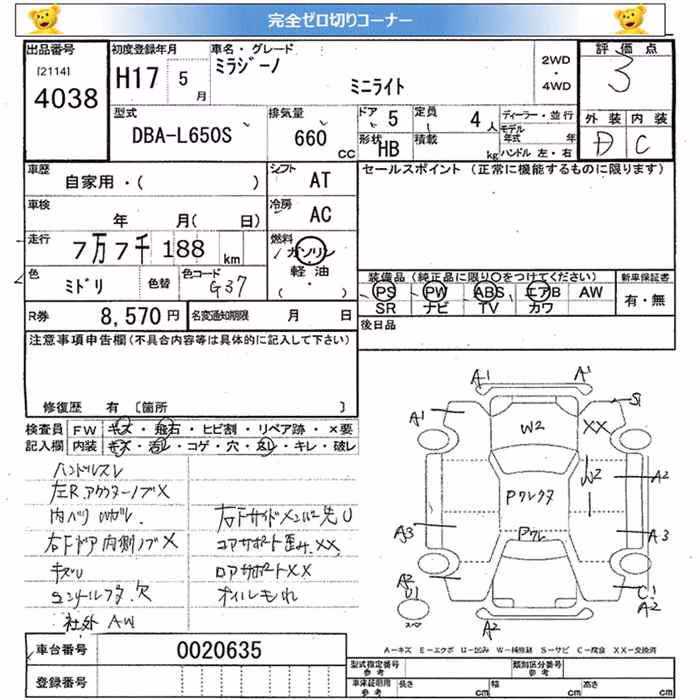 完全ゼロ切りコーナー
出品番号 初度登録年月 車名・グレード 評価点
[2114] 4038 H17 5月 ミラジーノ ミニライト 2WD・4WD 3
型式 排気量 ドア 定員 ディーラー・並行 外装 内装
DBA-L650S 660cc 5 4人 モデル年式 年 D C
形状 HB 積載 kg ハンドル 左・右
車歴 シフト セールスポイント (正常に機能するものに限ります)
自家用・( ) AT
車検 冷房
年 月( 日) AC
走行 燃料
7万7千188km ガソリン
色 色替 色コード 軽油
ミドリ G37 (・)
装備品 (純正品に限り○をつけてください) 新車保証書
PS PW ABS エアB AW 有・無
SR ナビ TV カワ
R券 8,570円 名変通知期限 月 日
後日品
注意事項申告欄(不具合内容等は具体的に記入して下さい)
修復歴 有 〔箇所 〕
検査員 FW キズ・飛石・ヒビ割・リペア跡・×要
記入欄 内装 キズ・汚レ・コゲ・穴・凹レ・キレ・破レ
ハンドルスレ
左R.アウターノブX
内ハリ
右Fドア内側ノブX
キズ
穴
社外AW
右Fサイドメンバー先U
コアサポート歪み.XX.
ロアサポートXX
オイルもれ
A1 A1
A1 S1
W2 XX
W2 A2
Pクレクタ
A3 Pクレ A3
A2 U1 C1 A2
スペア A2
A=キズ E=エクボ U=凹み W=補修跡 S=サビ C=腐食 XX=交換済
車台番号 0020635
登録番号
型式指定番号 参考 類別区分番号 参考
車庫証明用 参考 長さ cm 幅 cm 高さ cm